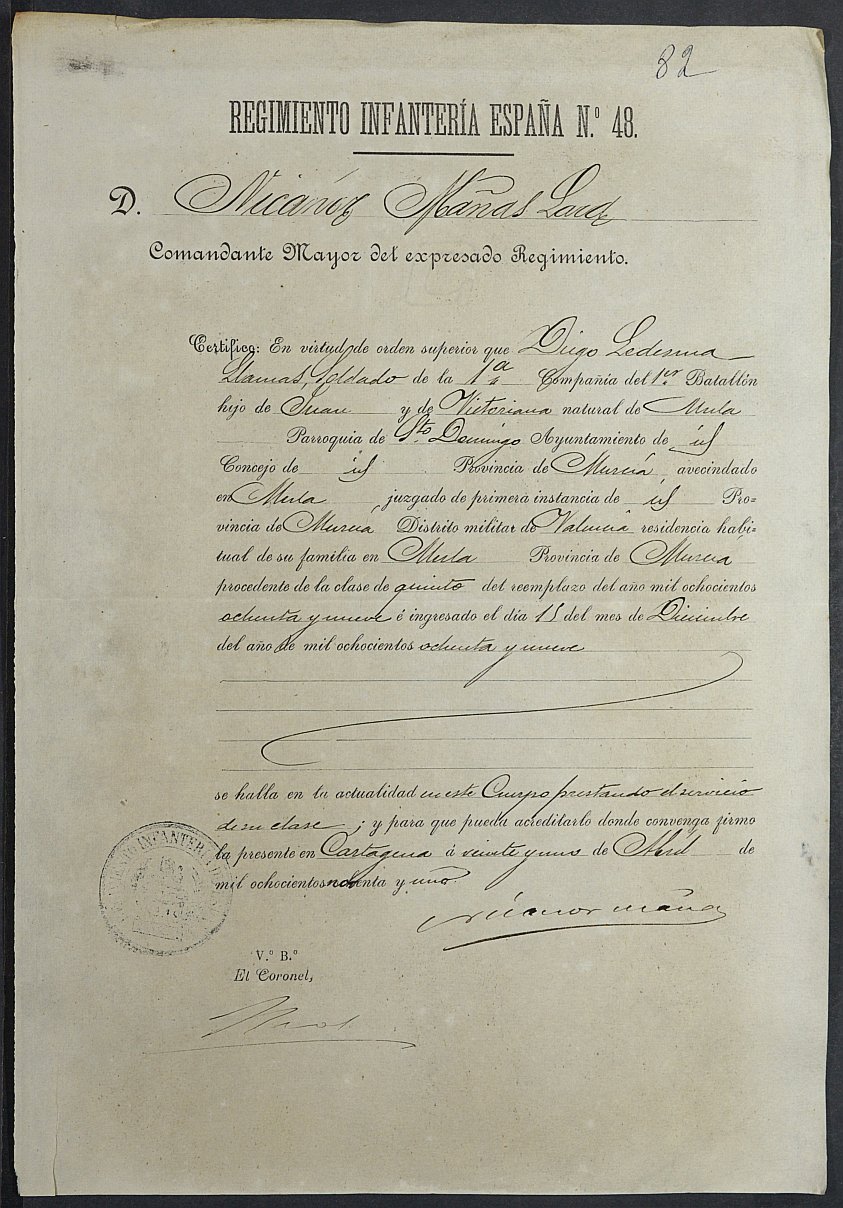 82
REGIMIENTO INFANTERÍA ESPAÑA N.º 48.
D. Nicanor Mañas
Comandante Mayor del expresado Regimiento.
Certifico: En virtud de orden superior que Diego Ledesma
Llamas, Soldado de la 1ª Compañía del 1er Batallón
hijo de Juan y de Victoriana natural de Mula
Parroquia de Sto. Domingo Ayuntamiento de id
Concejo de id Provincia de Murcia, avecindado
en Mula juzgado de primera instancia de id Pro-
vincia de Murcia Distrito militar de Valencia residencia habi-
tual de su familia en Mula Provincia de Murcia
procedente de la clase de quinto del reemplazo del año mil ochocientos
ochenta y nueve é ingresado el día del mes de Diciembre
del año de mil ochocientos ochenta y nueve
se halla en la actualidad en este Cuerpo prestando el servicio
de su clase; y para que pueda acreditarlo donde convenga firmo
la presente en Cartagena á veinte y uno de Abril de
mil ochocientos noventa y uno.
Nicanor Mañas
V.º B.º
El Coronel,